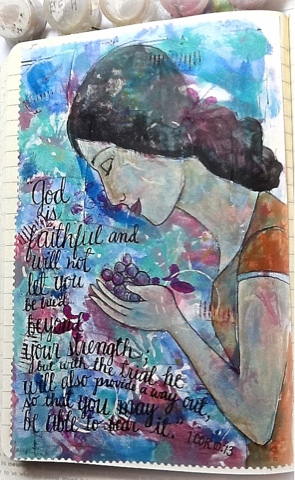 "God
is
faithful and
will not
let you
be tried
beyond
your strength;
but with the trial he
will also provide a way out,
so that you may
be able to bear it."
1 COR 10:13